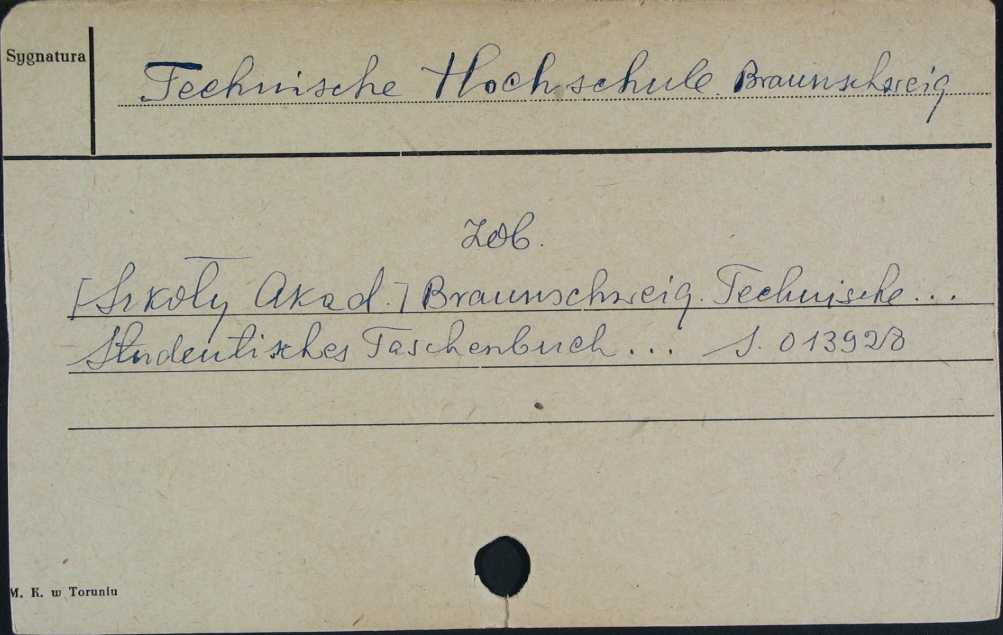 Sygnatura
Technische Hochschule Braunschweig
Zob.
[Szkoły Akad.] Braunschweig. Technische...
Studentisches Taschenbuch... S. 013928
M. K. w Toruniu